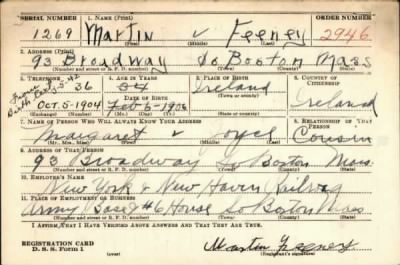 SERIAL NUMBER 1. NAME (Print) ORDER NUMBER
1269 Martin v Feeney 2946
(First) (Middle) (Last)
2. ADDRESS (Print)
93 Broadway So Boston Mass
(Number and street or R. F. D. number) (Town) (County) (State)
3. TELEPHONE 4. AGE IN YEARS 5. PLACE OF BIRTH 6. COUNTRY OF CITIZENSHIP
36 34 Ireland
DATE OF BIRTH (Town or county)
Oct. 5-1904 Feb 6-1906 Ireland
(Exchange) (Number) (Mo.) (Day) (Yr.) (State or country)
7. NAME OF PERSON WHO WILL ALWAYS KNOW YOUR ADDRESS 8. RELATIONSHIP OF THAT PERSON
Margaret v Joyce Cousin
(Mr., Mrs., Miss) (First) (Middle) (Last)
9. ADDRESS OF THAT PERSON
93 Broadway So Boston Mass
(Number and street or R. F. D. number) (Town) (County) (State)
10. EMPLOYER'S NAME
New York & New Haven Railway
11. PLACE OF EMPLOYMENT OR BUSINESS
Army Base #6 House So Boston Mass
(Number and street or R. F. D. number) (Town) (County) (State)
I AFFIRM THAT I HAVE VERIFIED ABOVE ANSWERS AND THAT THEY ARE TRUE.
REGISTRATION CARD
D. S. S. FORM 1 Martin Feeney